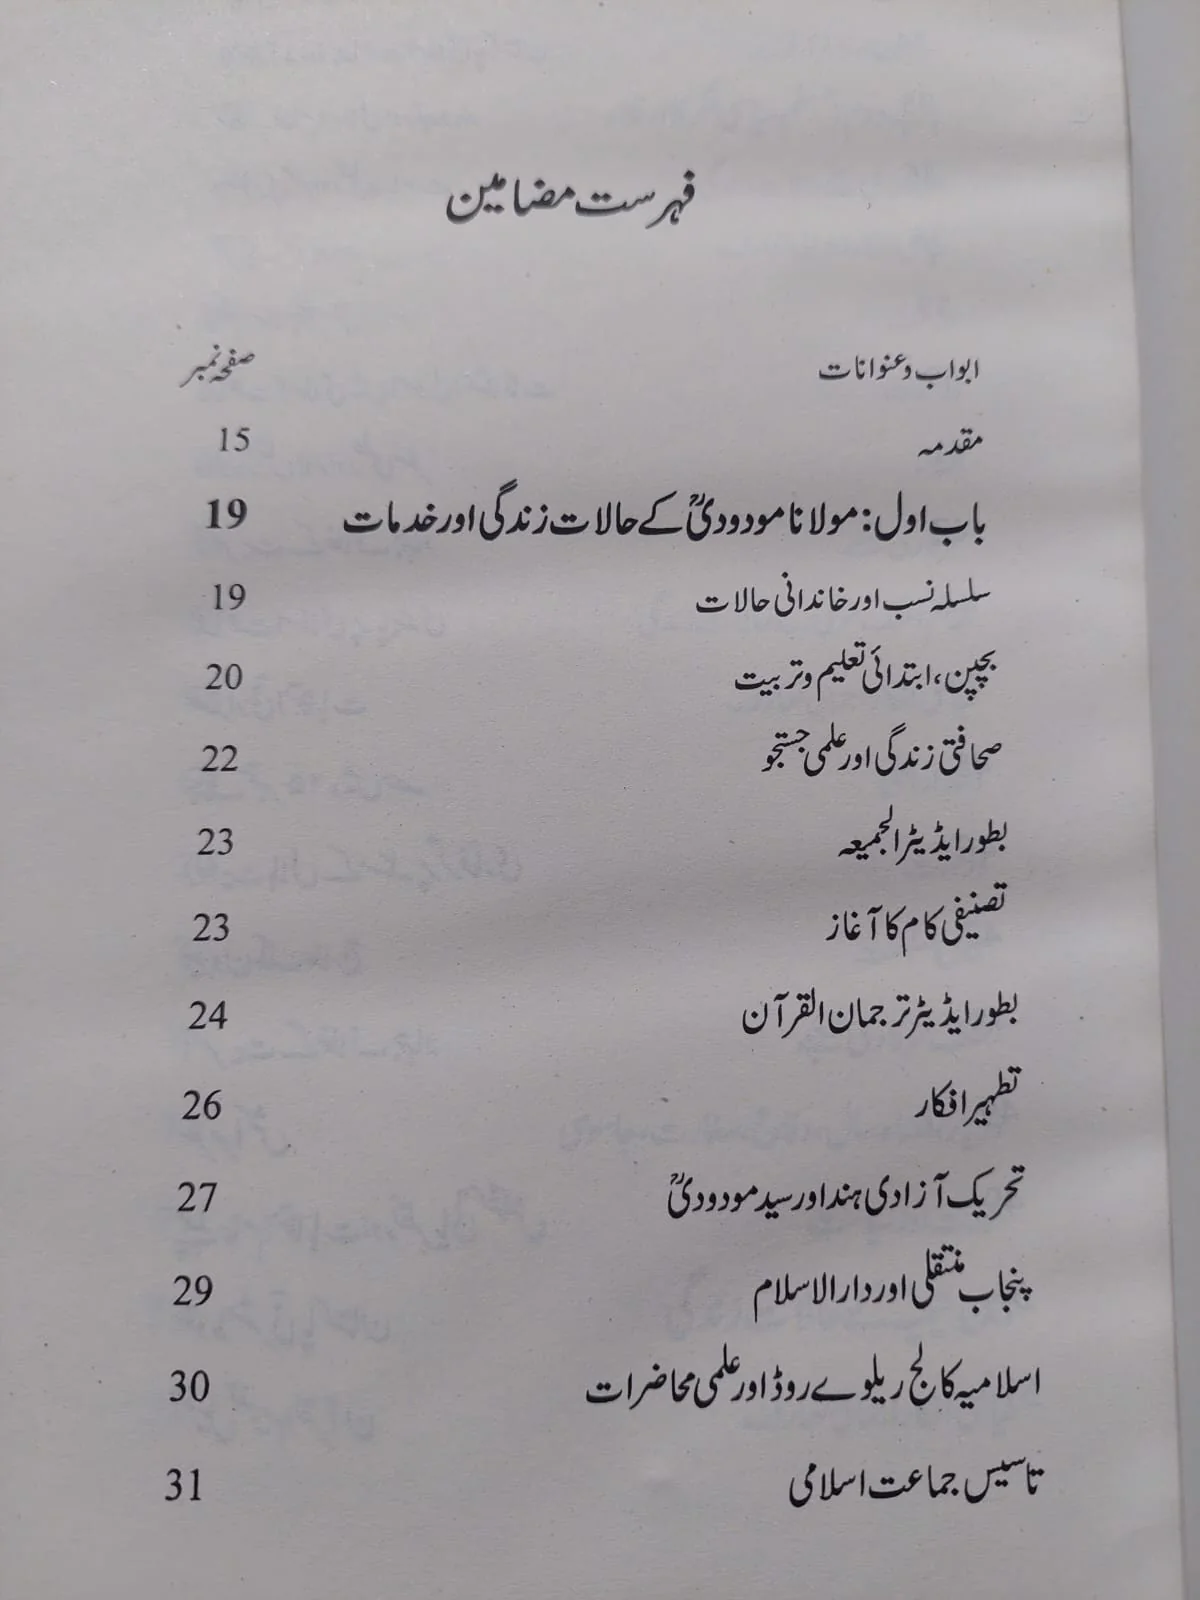 فہرست مضامین
ابواب و عنوانات صفحہ نمبر
مقدمہ 15
باب اول: مولانا مودودیؒ کے حالات زندگی اور خدمات 19
سلسلہ نسب اور خاندانی حالات 19
بچپن، ابتدائی تعلیم و تربیت 20
صحافتی زندگی اور علمی جستجو 22
بطور ایڈیٹر الجمیعہ 23
تصنیفی کام کا آغاز 23
بطور ایڈیٹر ترجمان القرآن 24
تطہیر افکار 26
تحریک آزادی ہند اور سید مودودیؒ 27
پنجاب منتقلی اور دارالاسلام 29
اسلامیہ کالج ریلوے روڈ اور علمی محاضرات 30
تاسیس جماعت اسلامی 31